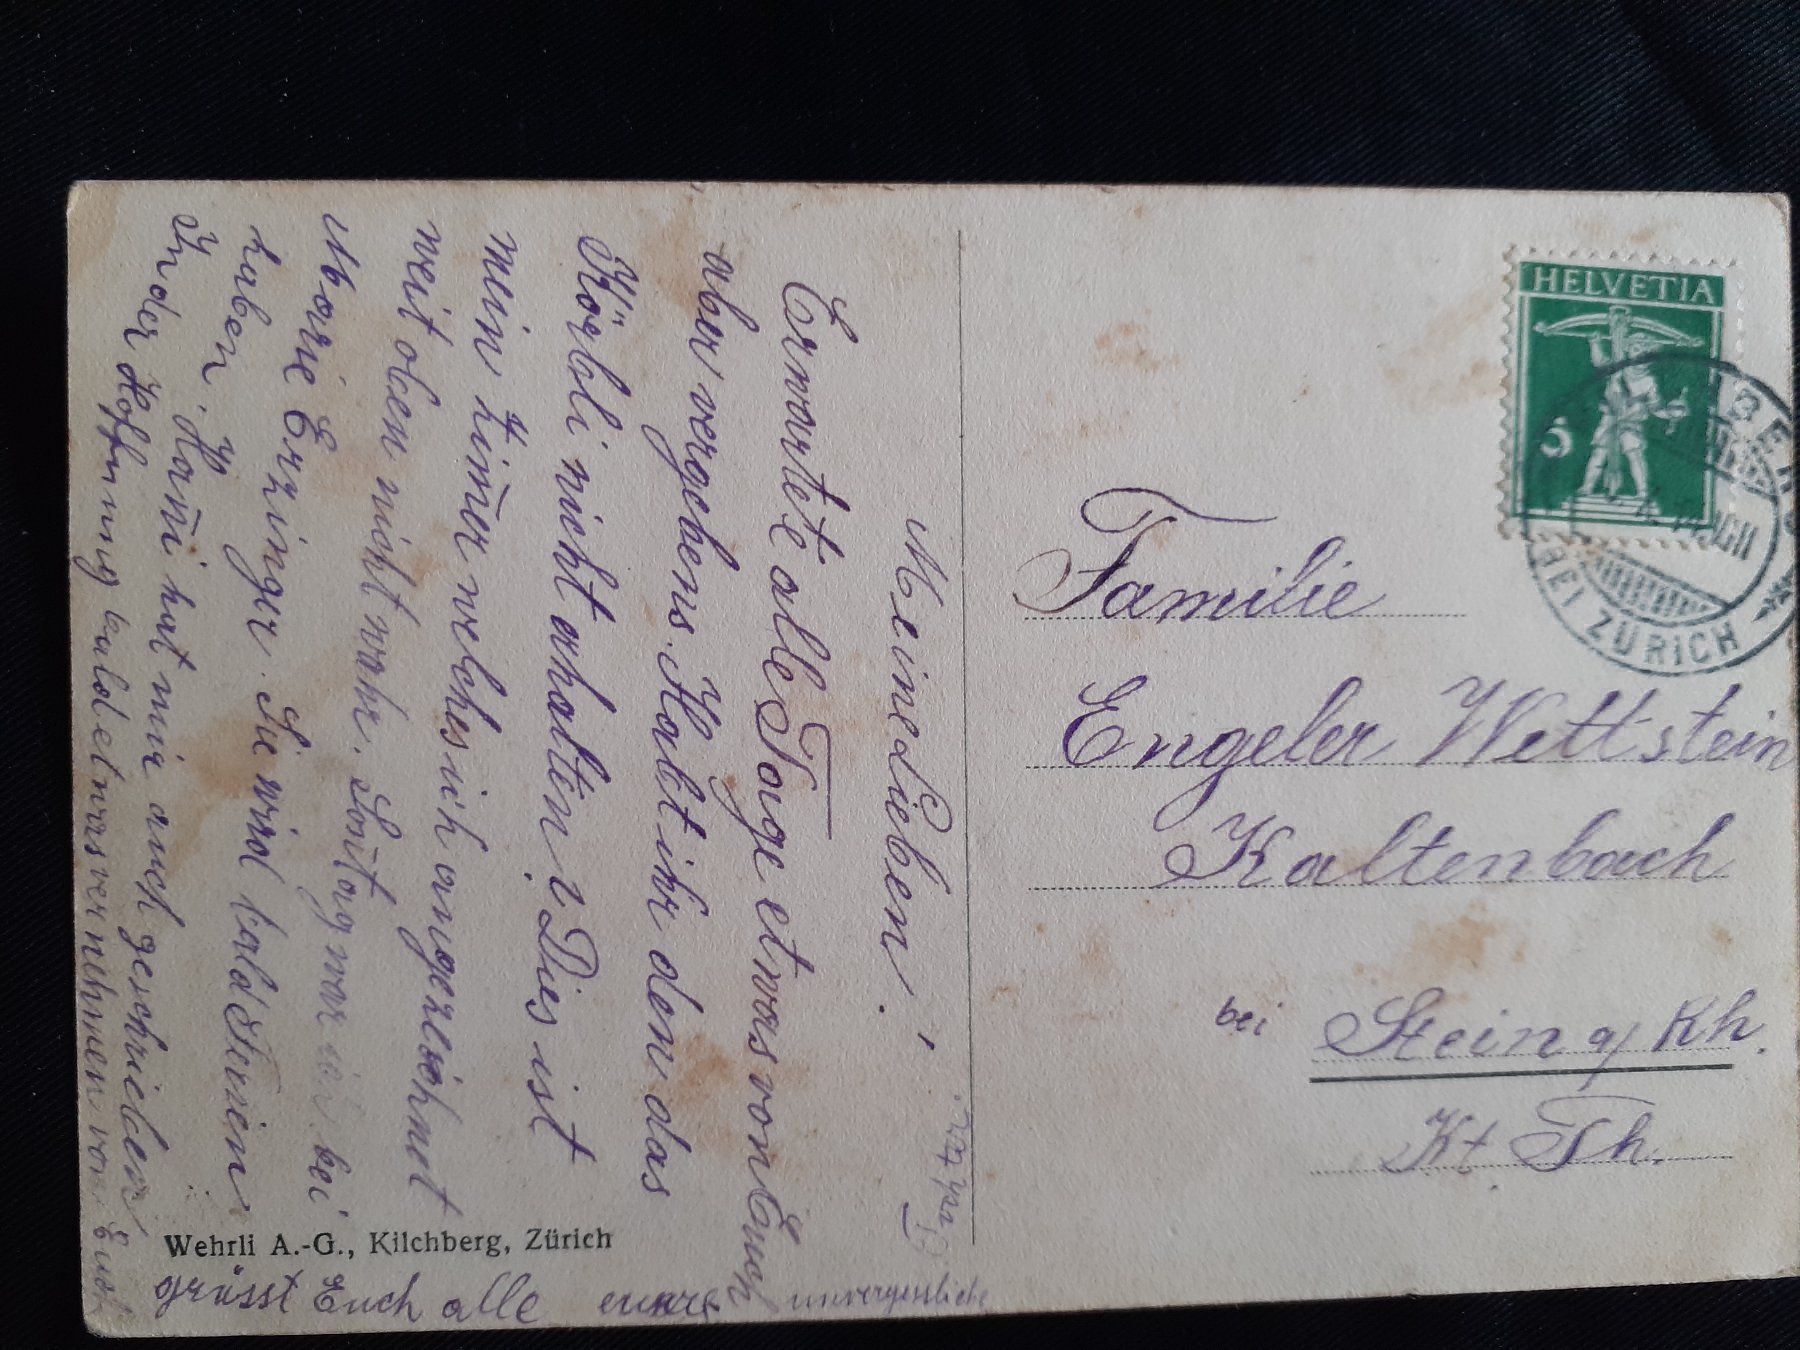 Meine Lieben!
Erwarte alle Tage etwas von Euch
aber vergebens. Habt ihr den das
Körbli nicht erhalten? Dies ist
mein Zim̄er welches ich angezeichnet
weit oben nicht wahr. Son̄tag war ich bei
Marie Erzinger. Sie wird bald Ferien
haben. Han̄i hat mir auch geschrieben
In der Hoffnung bald etwas vernehmen von Euch
grüsst Euch alle eure unvergessliche
Tochter.
Wehrli A.-G., Kilchberg, Zürich
HELVETIA
5
BEI ZÜRICH
Familie
Engeler Wettstein
Kaltenbach
bei Stein a/Rh.
Kt. Th.